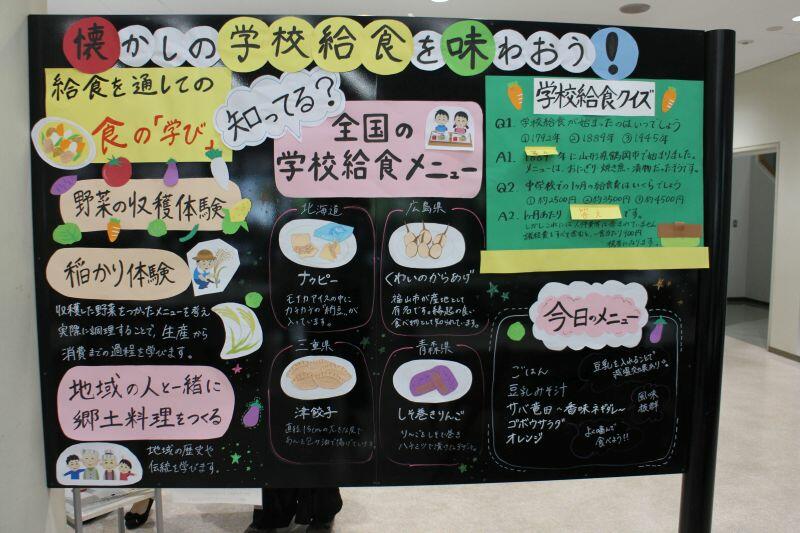 懐かしの学校給食を味わおう!
給食を通しての
食の「学び」
野菜の収穫体験
稲かり体験
収穫した野菜をつかったメニューを考え
実際に調理することで、生産から
消費までの過程を学びます。
地域の人と一緒に
郷土料理をつくる
地域の歴史や
伝統を学びます。
知ってる?
全国の
学校給食メニュー
北海道
ナッピー
モイカアイスの中に
カチカチの「納豆」が
入っています。
広島県
くわいのからあげ
福山市が産地として
有名です。縁起の良い
食べ物として知られています。
三重県
津餃子
直径15cmの大きな皮で
あんを包み油で揚げています。
青森県
しそ巻きりんご
りんごをしそで巻き
ハチミツで漬けたデザート。
学校給食クイズ
Q1. 学校給食が始まったのはいつでしょう
①1792年 ②1889年 ③1945年
A1. 年に山形県鶴岡市で始まりました。
メニューは、おにぎり・焼き魚・漬物だったそうです。
Q2. 中学校での1ヶ月の給食費はいくらでしょう
①約2500円 ②約3500円 ③約4500円
A2. 1ヶ月あたり です。
しかしこれには人件費等は含まれていません
諸経費もすべて含むと、一食あたり900円
程度になります。
今日のメニュー
ごはん
豆乳みそ汁
サバ竜田~香味ネギダレ~
ゴボウサラダ
オレンジ
豆乳を入れることで
減塩効果あり。
風味
抜群
よく噛んで
食べよう!!